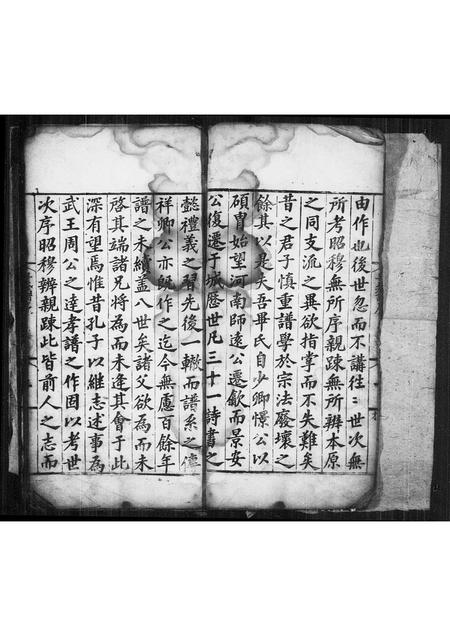 由作也後世忽而不講往〻世次無
所考昭穆無所序親踈無所辨本原
之同支流之異欲指掌而不失難矣
昔之君子慎重譜學於宗法廢壞之
餘其以是夫吾畢氏自少卿憬公以
碩胄始望河南師遠公遷歙而景安
公復遷于城歷世凡三十一詩書之
懿禮義之習先後一轍而譜系之傳
祥卿公亦既作之迄今無慮百餘年
譜之未續蓋八世矣諸父欲為而未
啓其端諸兄將為而未逢其會于此
深有望焉惟昔孔子以繼志述事為
武王周公之達孝譜之作固以考世
次序昭穆辨親踈此皆前人之志而